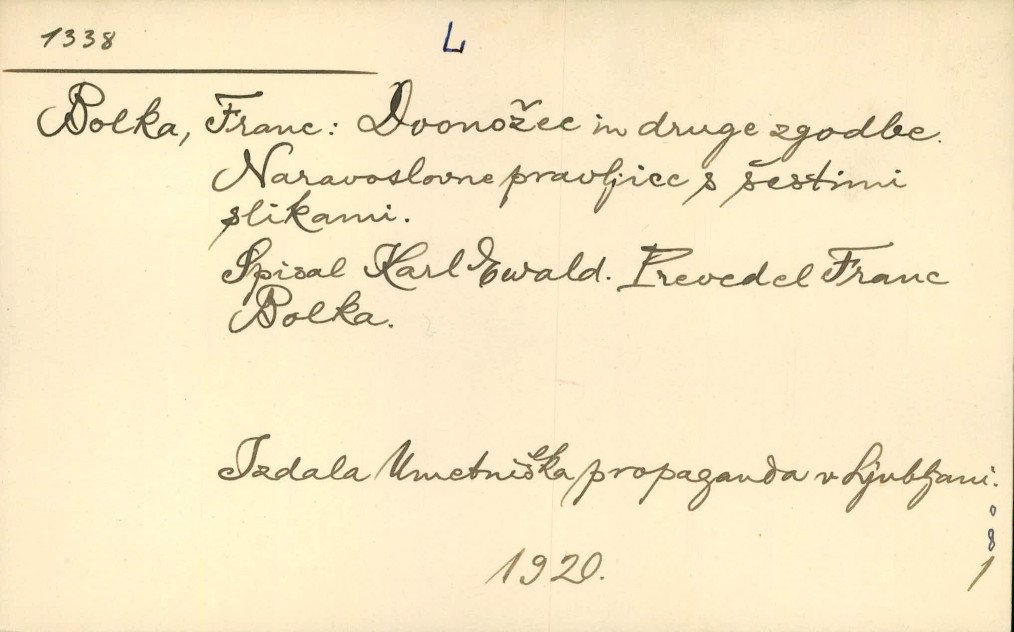 1338 L
Bolka, Franc: Dvonožec in druge zgodbe.
Naravoslovne pravljice s šestimi
slikami.
Spisal Karl Ewald. Prevedel Franc
Bolka.
Izdala Umetniška propaganda v Ljubljani.
1920.